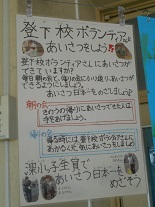 登下校ボランティアさん
あいさつをしよう
登下校ボランティアさんにあいさつが
できていますか？
毎日朝の会と、帰りの会にふり返り、あいさつが
できるようにしましょう。
あいさつ日本一をめざしましょう
朝の会
さわやかに
あいさつできた人は
手をあげましょう。
帰りの会
帰る時には登下校ボランティアさんに
あかるく元気にあいさつをしましょう
小全員で
あいさつ日本一を
めざそう